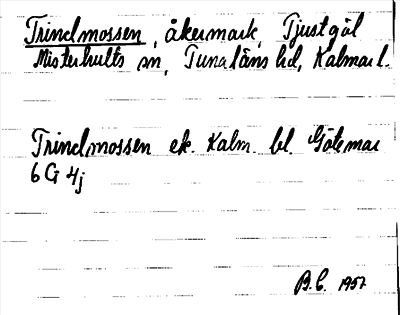 Trindmossen, åkermark, Tjustgöl
Misterhults sn, Tunaläns hd, Kalmar l.
Trindmossen ek. Kalm. bl. Götemar
6 G 4j
B.C. 1957